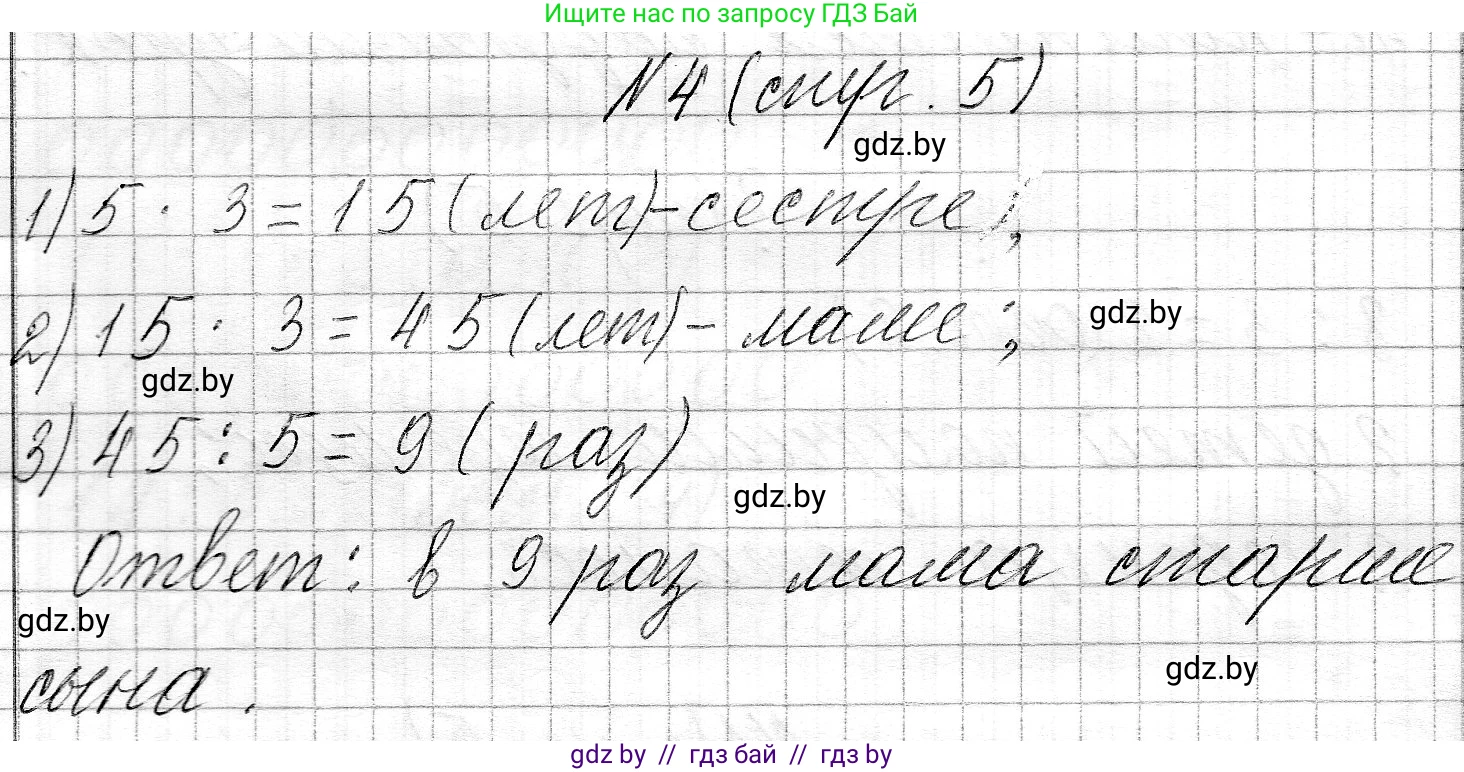 Ищите нас по запросу ГДЗ Бай
№4 (стр. 5)
gdz.by
1) 5 · 3 = 15 (лет) - сестре;
2) 15 · 3 = 45 (лет) - маме;
gdz.by
gdz.by
3) 45 : 5 = 9 (раз)
gdz.by
Ответ: в 9 раз мама старше
gdz.by
сына.
gdz.by
gdz.by // гдз бай // гдз by